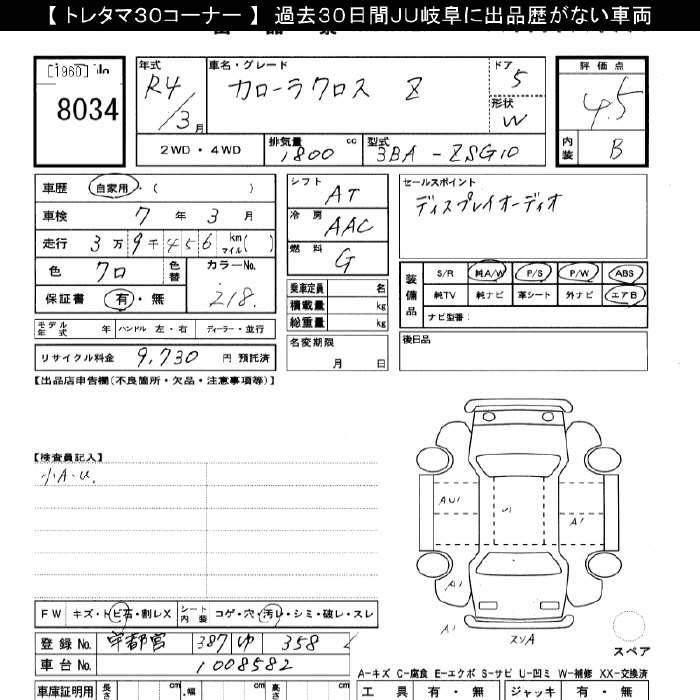 【 トレタマ30コーナー 】 過去30日間JU岐阜に出品歴がない車両
[1960]
8034
年式 車名・グレード ドア 評価点
R4/3月 カローラクロス Z 5 4.5
形状 W
2WD・4WD 排気量 1800 cc 型式 3BA-ZSG10 内装 B
車歴 自家用・( )
車検 7年 3月
走行 3万9千456 km マイル( )
色 クロ 色替 カラーNo. 218.
保証書 有・無
モデル年式 年 ハンドル 左・右 ディーラー・並行
リサイクル料金 9,730 円 預託済
シフト AT
冷房 AAC
燃料 G
乗車定員 名
積載量 kg
総重量 kg
名変期限
月 日
セールスポイント
ディスプレイオーディオ
装備品 S/R 純A/W P/S P/W ABS
純TV 純ナビ 革シート 外ナビ エアB
ナビ型番:
後日品
【出品店申告欄(不良箇所・欠品・注意事項等)】
【検査員記入】
小A・U.
AU1
A1
A1
A1
スリA
スペア
FW キズ・トビ石・割レX シート内装 コゲ・穴・汚レ・シミ・破レ・スレ
登録No. 宇都宮 387 ゆ 358
車台No. 1008582
A-キズ C-腐食 E-エクボ S-サビ U-凹ミ W-補修 XX-交換済
車庫証明用 長さ cm 幅 cm 高さ cm 工具 有・無 ジャッキ 有・無